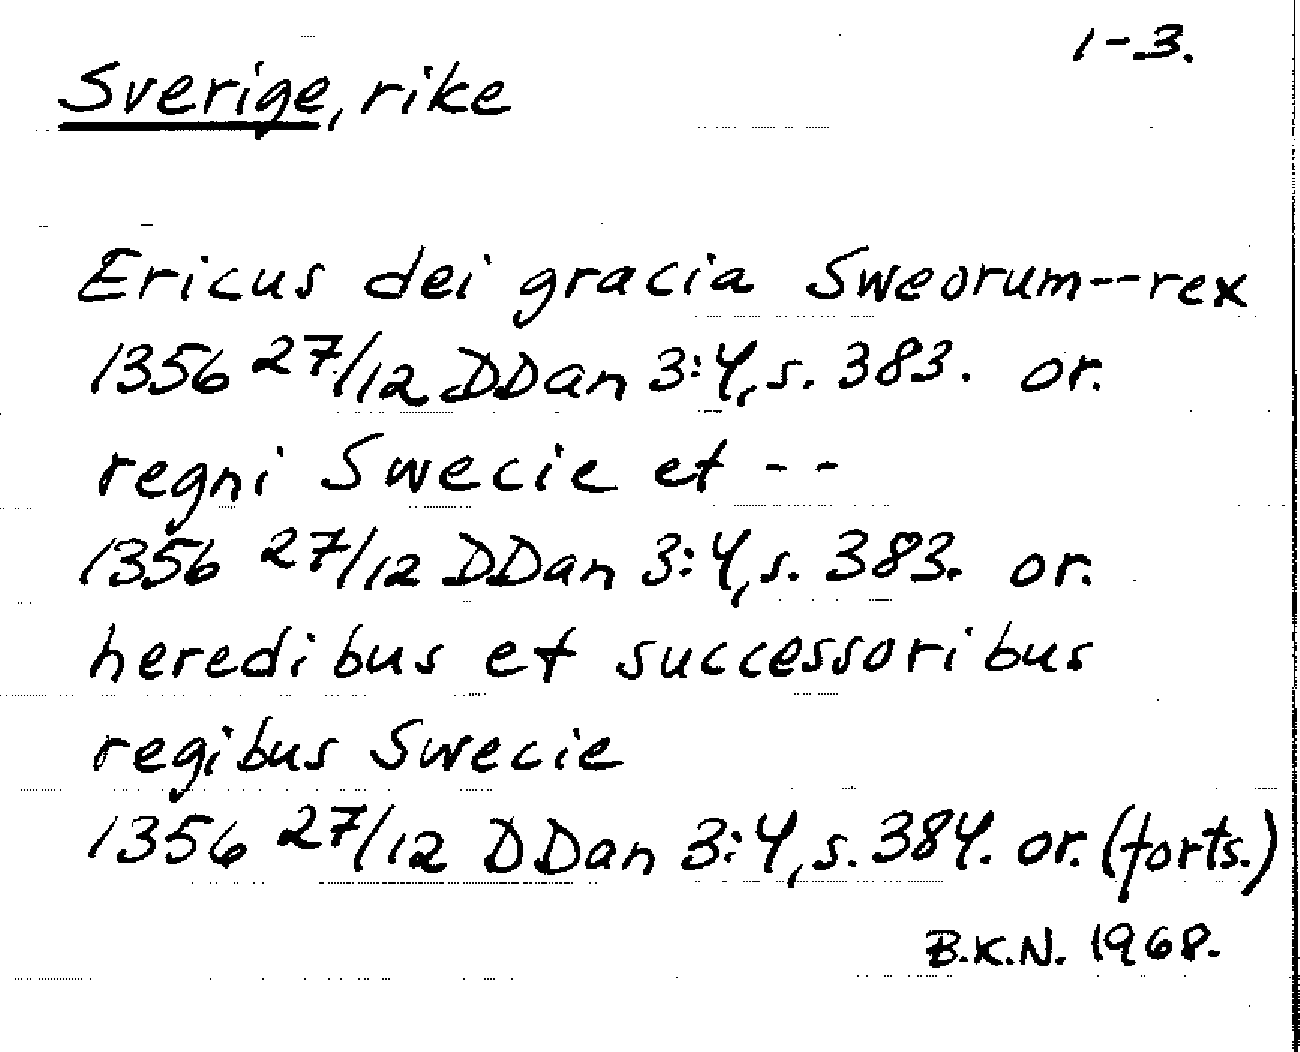 1-3.
Sverige, rike
Ericus dei gracia Sweorum--rex
1356 27/12 DDan 3:4, s. 383. or.
regni Swecie et --
1356 27/12 DDan 3:4, s. 383. or.
heredibus et successoribus
regibus Swecie
1356 27/12 DDan 3:4, s. 384. or. (forts.)
B.K.N. 1968.